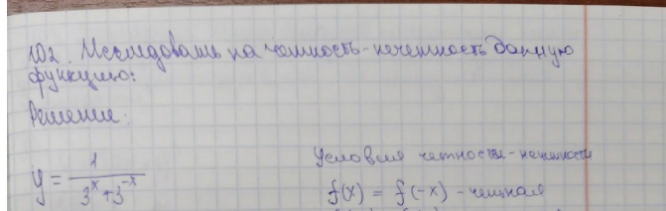 102. Исследовать на четность-нечетность данную
функцию:
Решение:
y = 1 / (3^x + 3^-x)
Условия четности-нечетности
f(x) = f(-x) - четная